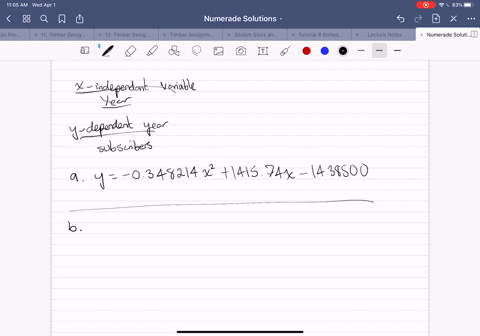 11:05 AM Wed Apr 1
83%
Numerade Solutions
11. Timber Desig...
12. Timber Desig...
Tutorial 8 Bolted
Lecture Notes
Numerade Soluti...
x-independant variable
Year
y-dependent year
subscribers
a. y = -0.348214x² + 1415.74x - 1438500
b.